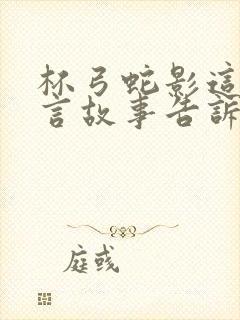 杯弓蛇影這
言故事告訴
庭彧